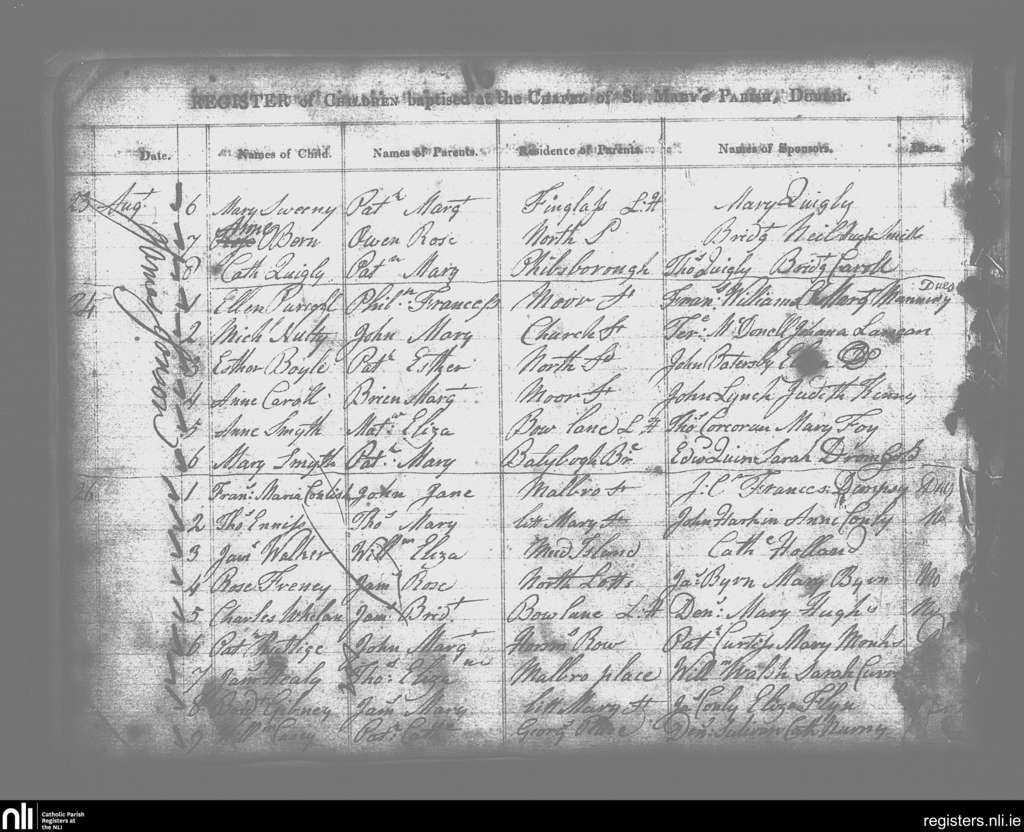 REGISTER of CHILDREN baptised at the CHAPEL of St. MARY'S PARISH, DUBLIN.
Date. Names of Child. Names of Parents. Residence of Parents. Names of Sponsors. Dues.
23 Augt 6 Mary Sweeny Patk Margt Finglass L:H Mary Quigly
7 Anne OBern Owen Rose North S Bridgt Neil Smith
8 Cath Quigly Patk Mary Phibsborough Thos Quigly Bridgt Caroll
24 1 Ellen Philn: Francess Moor St Frans Williams Margt Manning Dues
2 Michl Nutty John Mary Church St Ter: McDonell Johana
3 Esther Boyle Patk Esther North St John Do
4 Anne Caroll Brien Margt Moor St John Lynch Judith Henny
5 Anne Smyth Matw: Eliza Bow lane L:H Thos Corcoran Mary Foy
6 Mary Smyth Patk: Mary Balybogh Br Edwd Quin Sarah
26 1 Frans: Maria Conlish John Jane Malbro St J: C Frances Dempsy Dues
2 Thos Enniss Thos Mary Litt Mary St John Harkin Anne Conly No
3 Jams Walker Willm Eliza Mud Island Cathe Holland
4 Rose Freney Jams Rose North Lotts Jas Byrn Mary Byrn No
5 Charles Whelan Jams Bridt Bow lane L:H Denis: Mary Hughs No
6 Patk Ruttige John Margt Row Patk Curtiss Mary
7 Jams Healy Thos: Eliza Malbro place Willm Walsh Sarah
8 Jams Mary Litt Mary St Jas Conly Eliza Flyn
9 Willm Casey Patk Cath George Place Denis: Sulivan Cath
James Joseph
nli Catholic Parish
Registers at
the NLI
registers.nli.ie